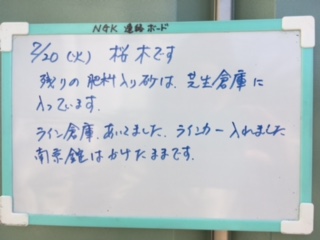 NGK 連絡ボード
2/20 (火) 桜木です
残りの肥料入り砂は、芝生倉庫に
入っています.
ライン倉庫、あいてました、ラインカー入れました
南京錠はかけたままです.